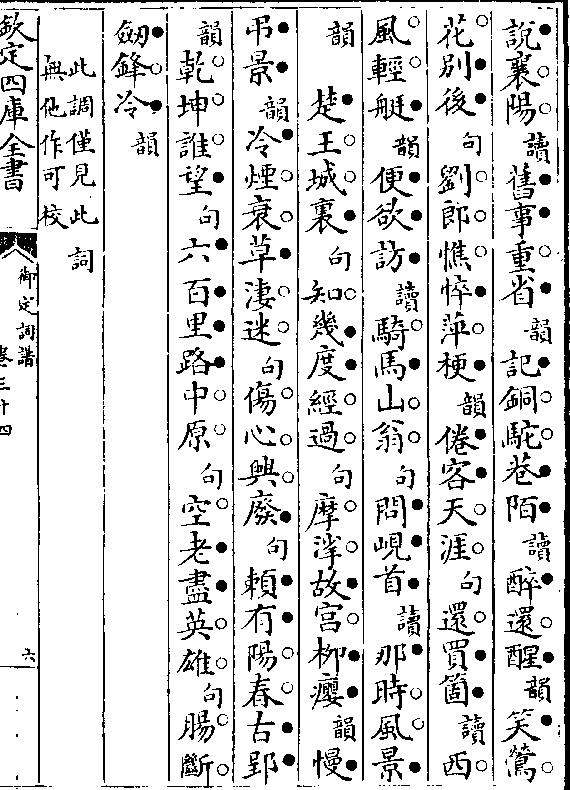 說襄陽讀舊事重省韻記銅駝巷陌讀醉還醒韻笑鶯
花別後句劉郎憔悴萍梗韻倦客天涯句還買箇讀西
風輕艇韻便欲訪讀騎馬山翁句問峴首讀那時風景
韻楚王城裏句知幾度經過句摩挲故宮柳癭韻慢
弔景韻冷煙衰草淒迷句傷心興廢句賴有陽春古郢
韻乾坤誰望句六百里路中原句空老盡英雄句腸斷
劒鋒冷韻
此調僅見此詞
無他作可校
欽定四庫全書
御定詞譜
卷三十四
六